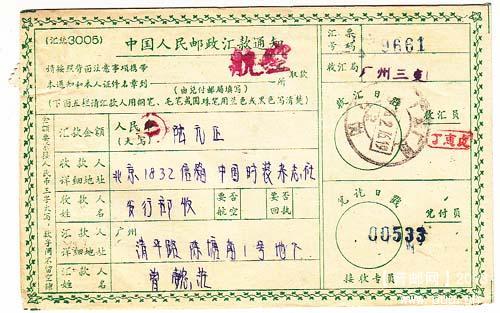 (汇北3005) 中国人民邮政汇款通知
航空
请按照背面注意事项携带
本通知和本人证件名章到 一所取款
(由兑付邮局填写)
(下面五栏请汇款人用钢笔、毛笔或圆珠笔用兰色或黑色写清楚)
汇票号码 9661
收汇局 广州三支
收汇日戳 收汇员
丁惠贞
兑讫日戳 兑付员
00533
接收专员
汇款金额 人民币(大写) 陆元正
收款人详细地址 北京1832信箱 中国时装杂志社
收款人姓名 发行部收 要否航空 要否回执
汇款人详细地址 广州 清平路 1号地下
汇款人姓名 曾
金额要在人民币三字大写，数字间不留空隙